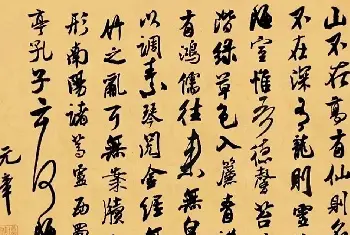 山不在高有仙則
不在深有龍則靈
陋室惟吾德馨苔
階綠草色入簾青
有鴻儒往来無白
以調素琴閱金經
竹之亂耳無案牘
形南陽諸葛廬西蜀
亭孔子云何陋
元章